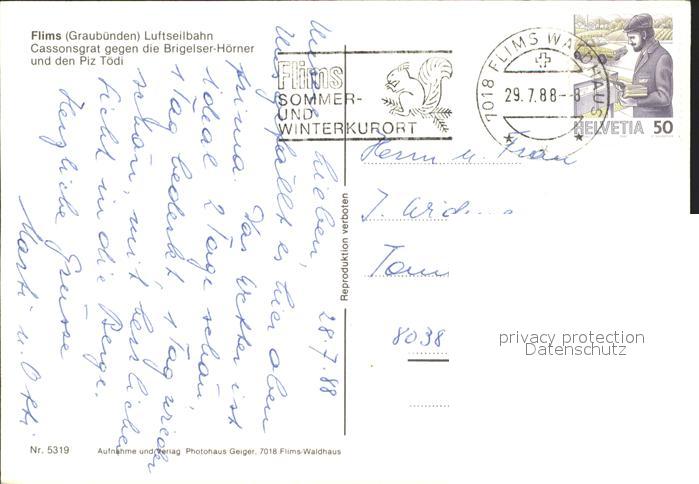 Flims (Graubünden) Luftseilbahn
Cassonsgrat gegen die Brigelser-Hörner
und den Piz Tödi
Flims
SOMMER-
UND
WINTERKURORT
7018 FLIMS WALDHAUS
29.7.88-8
HELVETIA 50
28.7.88
Lieben,
Uns gefällt es hier oben
prima. Das Wetter ist
ideal 2 Tage schön,
1 Tag bedeckt 1 Tag wieder
schön, mit herrlicher
Sicht in die Berge.
Herzliche Grüsse
Marti u. Otti
Herrn u. Frau
J.
8038
privacy protection
Datenschutz
Reproduktion verboten
Nr. 5319
Aufnahme und Verlag Photohaus Geiger, 7018 Flims-Waldhaus